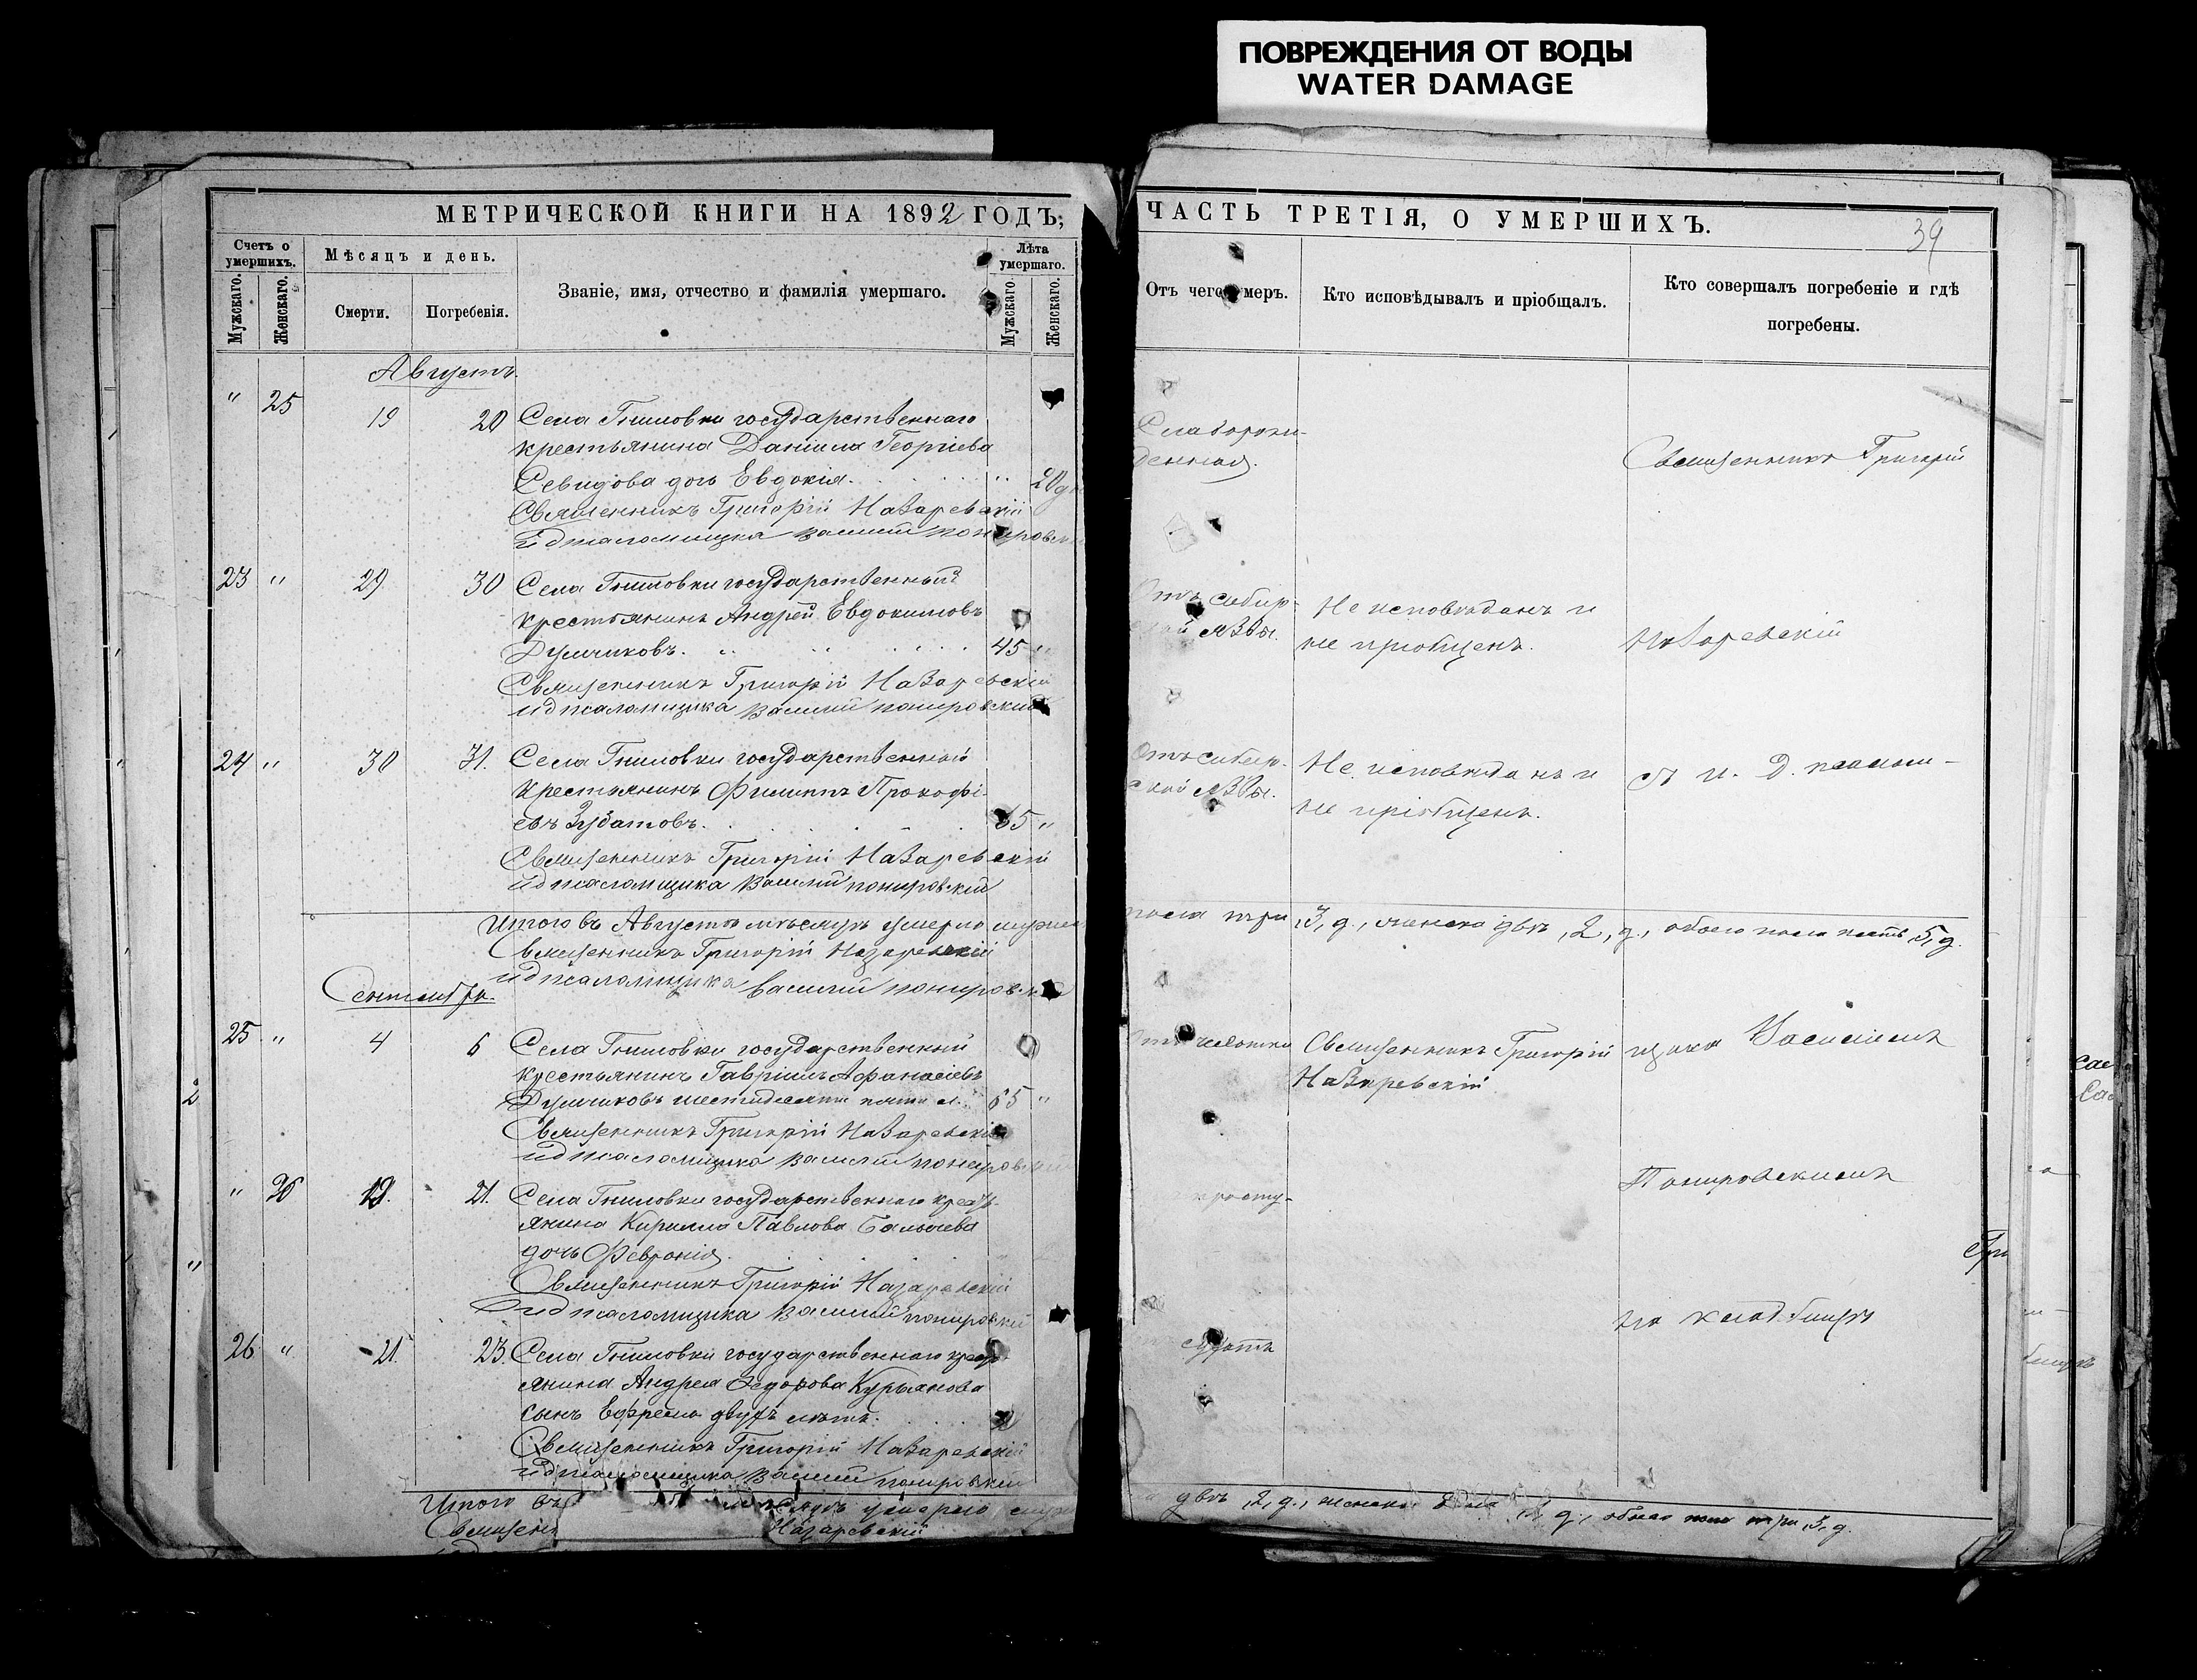 ПОВРЕЖДЕНИЯ ОТ ВОДЫ
WATER DAMAGE
МЕТРИЧЕСКОЙ КНИГИ НА 1892 ГОДЪ,
Счетъ о умершихъ.
Мужскаго.
Женскаго.
Мѣсяцъ и день.
Смерти.
Погребенія.
Званіе, имя, отчество и фамилія умершаго.
Лѣта умершаго.
Мужскаго.
Женскаго.
Августъ.
" 25 19 20 Села Гниловки государственнаго
крестьянина Даніила Георгіева
дочь Евдокія. " 20
Священникъ Григорій Назаревскій
И д псаломщика Василій Понировскій
23 " 29 30 Села Гниловки государственный
крестьянинъ Андрей Евдокимовъ
Думчиковъ. 45 "
Священникъ Григорій Назаревскій
И д псаломщика Василій Понировскій
24 " 30 31. Села Гниловки государственный
крестьянинъ Филиппъ Прокофі-
евъ Зубатовъ. 65 "
Священникъ Григорій Назаревскій
И д псаломщика Василій Понировскій
Итого въ Августѣ мѣсяцѣ умерло
Священникъ Григорій Назаревскій
И д псаломщика Василій Понировскій
Сентябрь.
25 " 4 6 Села Гниловки государственный
крестьянинъ Гавріилъ Афанасіевъ
Думчиковъ шестидесяти пяти л. 65 "
Священникъ Григорій Назаревскій
И д псаломщика Василій Понировскій
" 26 19. 21. Села Гниловки государственнаго крест-
янина Кирилла Павлова
дочь Февронія.
Священникъ Григорій Назаревскій
И д псаломщика Василій Понировскій
26 " 21. 23. Села Гниловки государственнаго крест-
янина Андрея Федорова Курьянова
сынъ Ефремъ двухъ лѣтъ. 2
Священникъ Григорій Назаревскій
И д псаломщика Василій Понировскій
Итого въ мѣсяцѣ умерло
Назаревскій
ЧАСТЬ ТРЕТІЯ, О УМЕРШИХЪ.
39
Отъ чего умеръ.
Кто исповѣдывалъ и пріобщалъ.
Кто совершалъ погребеніе и гдѣ
погребены.
Слаборож-
денная.
Священникъ Григорій
Отъ сибир-
ской язвы.
Не исповѣданъ и
не пріобщенъ.
Назаревскій
Отъ сибир-
ской язвы.
Не исповѣданъ и
не пріобщенъ.
съ и. д. псалом-
пола три, 3, д., женска двѣ, 2, д., обоего пола пять, 5, д.
Отъ чахотки
Священникъ Григорій
Назаревскій
щика Василіемъ
Понировскимъ
просту-
на кладбищѣ
двѣ, 2, д., женска одна, 1, д., обоего пола три, 3, д.